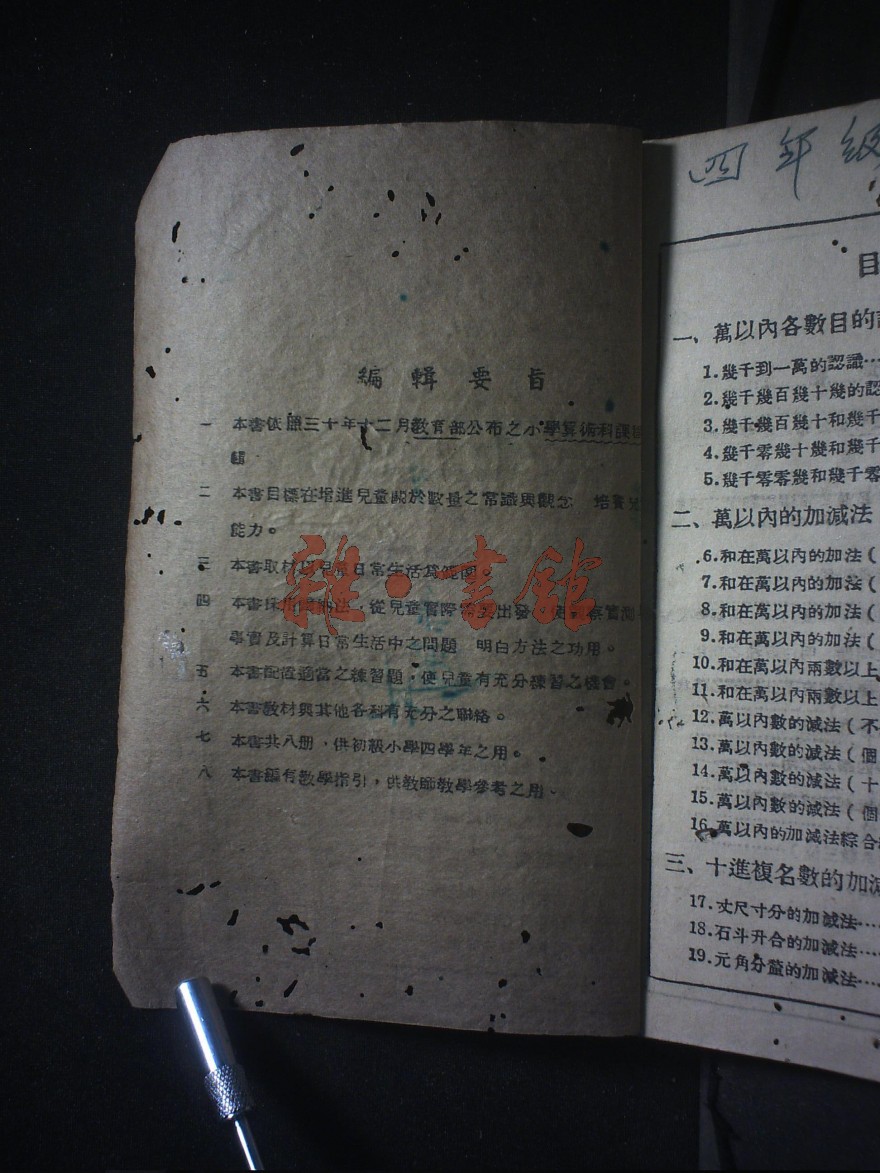 編輯要旨
一 本書依照三十年十二月教育部公布之小學算術科課
輯
二 本書目標在增進兒童關於數量之常識與觀念 培養兒
能力。
三 本書取材以兒童日常生活為範圍。
四 本書採 法，從兒童實際 出發 使 察實測
事實及計算日常生活中之問題 明白方法之功用。
五 本書配置適當之練習題，使兒童有充分練習之機會。
六 本書教材與其他各科有充分之聯絡。
七 本書共八册，供初級小學四學年之用。
八 本書編有教學指引，供教師教學參考之用。
雜·書館
四年級
目
一、萬以內各數目的認
1.幾千到一萬的認識…
2.幾千幾百幾十幾的認
3.幾千幾百幾十和幾千
4.幾千零幾十幾和幾千
5.幾千零零幾和幾千零
二、萬以內的加減法
6.和在萬以內的加法(
7.和在萬以內的加法(
8.和在萬以內的加法(
9.和在萬以內的加法(
10.和在萬以內兩數以上
11.和在萬以內兩數以上
12.萬以內數的減法(不
13.萬以內數的減法(個
14.萬以內數的減法(十
15.萬以內數的減法(個
16.萬以內的加減法綜合
三、十進複名數的加減
17.丈尺寸分的加減法…
18.石斗升合的加減法…
19.元角分釐的加減法…